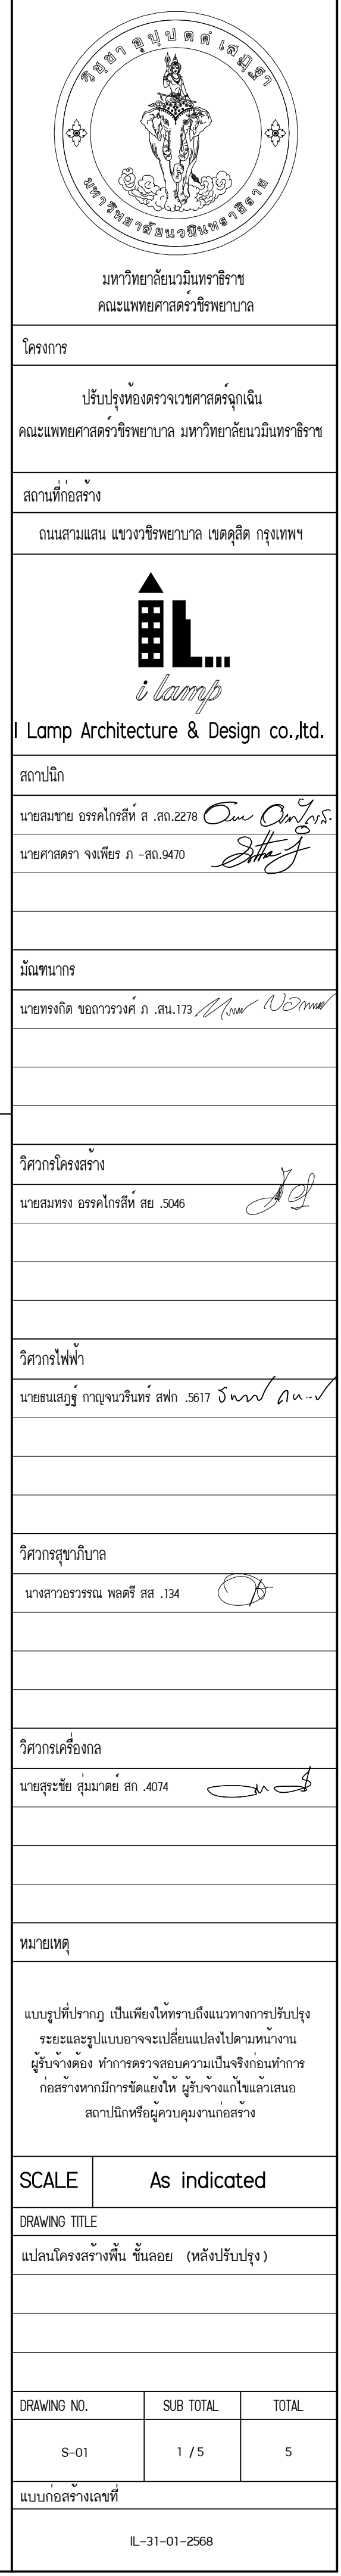 วิชฺชา อุปฺปตตํ เสฏฺฐา
มหาวิทยาลัยนวมินทราธิราช
มหาวิทยาลัยนวมินทราธิราช
คณะแพทยศาสตร์วชิรพยาบาล
โครงการ
ปรับปรุงห้องตรวจเวชศาสตร์ฉุกเฉิน
คณะแพทยศาสตร์วชิรพยาบาล มหาวิทยาลัยนวมินทราธิราช
สถานที่ก่อสร้าง
ถนนสามแสน แขวงวชิรพยาบาล เขตดุสิต กรุงเทพฯ
i lamp
I Lamp Architecture & Design co.,ltd.
สถาปนิก
นายสมชาย อรรคไกรสีห์ ส .สถ.2278
นายศาสตรา จงเพียร ภ -สถ.9470
มัณฑนากร
นายทรงกิต ขอถาวรวงศ์ ภ .สน.173
วิศวกรโครงสร้าง
นายสมทรง อรรคไกรสีห์ สย .5046
วิศวกรไฟฟ้า
นายธนเสฏฐ์ กาญจนวรินทร์ สฟก .5617
วิศวกรสุขาภิบาล
นางสาวอรวรรณ พลตรี สส .134
วิศวกรเครื่องกล
นายสุระชัย สุ่มมาตย์ สก .4074
หมายเหตุ
แบบรูปที่ปรากฎ เป็นเพียงให้ทราบถึงแนวทางการปรับปรุง
ระยะและรูปแบบอาจจะเปลี่ยนแปลงไปตามหน้างาน
ผู้รับจ้างต้อง ทำการตรวจสอบความเป็นจริงก่อนทำการ
ก่อสร้างหากมีการขัดแย้งให้ ผู้รับจ้างแก้ไขแล้วเสนอ
สถาปนิกหรือผู้ควบคุมงานก่อสร้าง
SCALE As indicated
DRAWING TITLE
แปลนโครงสร้างพื้น ชั้นลอย (หลังปรับปรุง)
DRAWING NO. SUB TOTAL TOTAL
S-01 1 /5 5
แบบก่อสร้างเลขที่
IL-31-01-2568